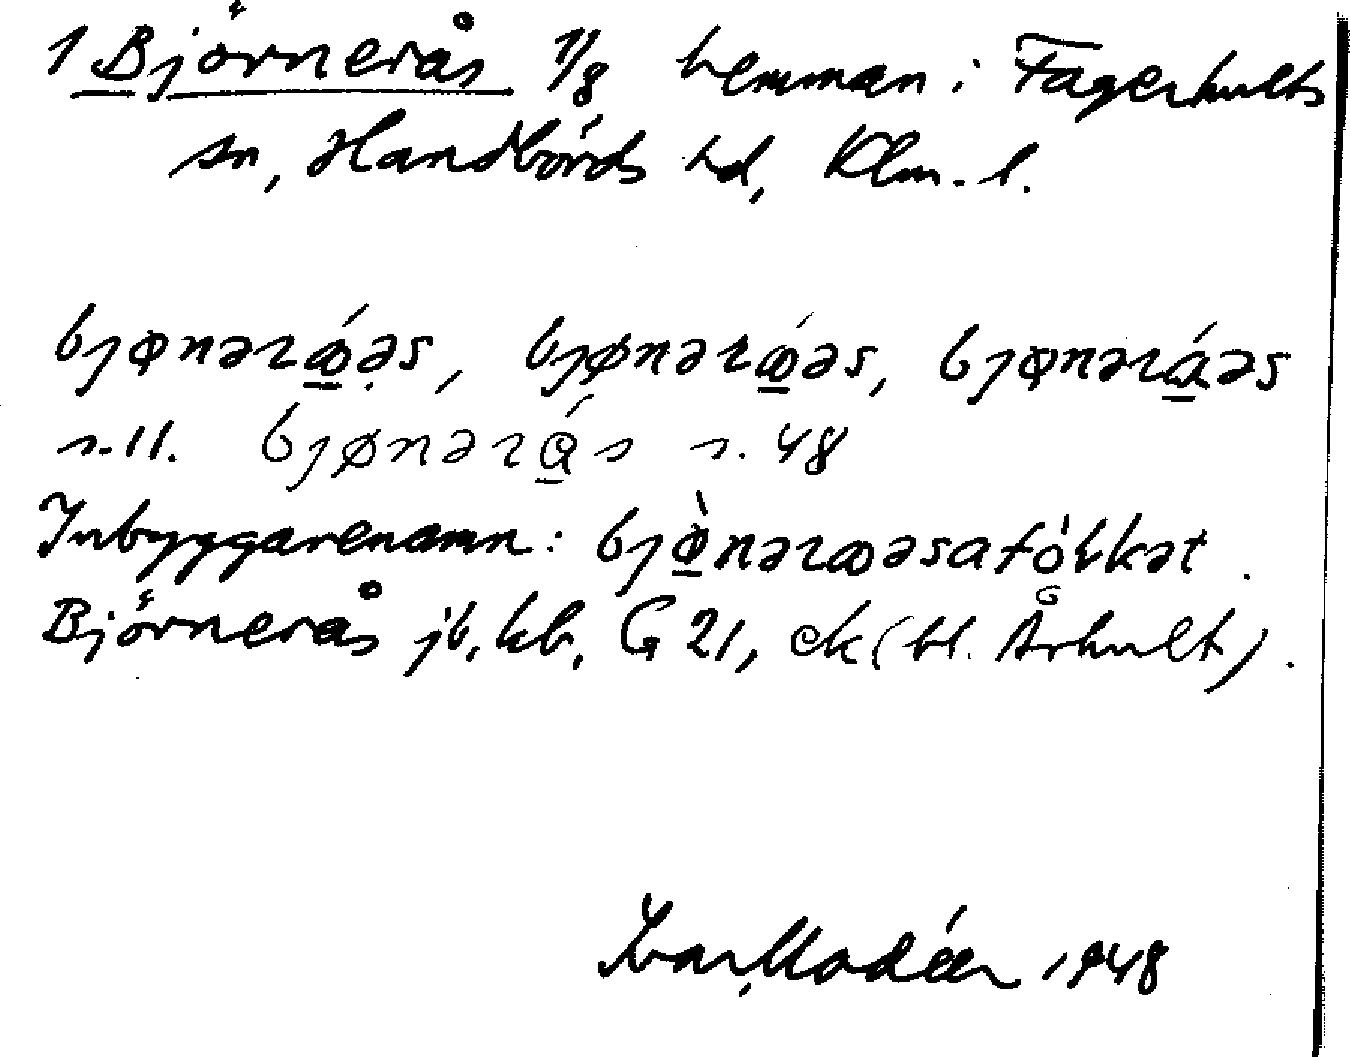 1 Björnerås 1/8 hemman i Fagerhults
sn, Handbörds hd, Klm. l.
bjɵnərǿəs, bjønərǿəs, bjɵnərɑ́əs
s. 11. bjønərɑ́s s. 48
Inbyggarenamn: bjø̀nərɵəsafòlkət.
Björnerås jb, kb, G 21, ek (bl. Århult).
Ivar Modéer 1948